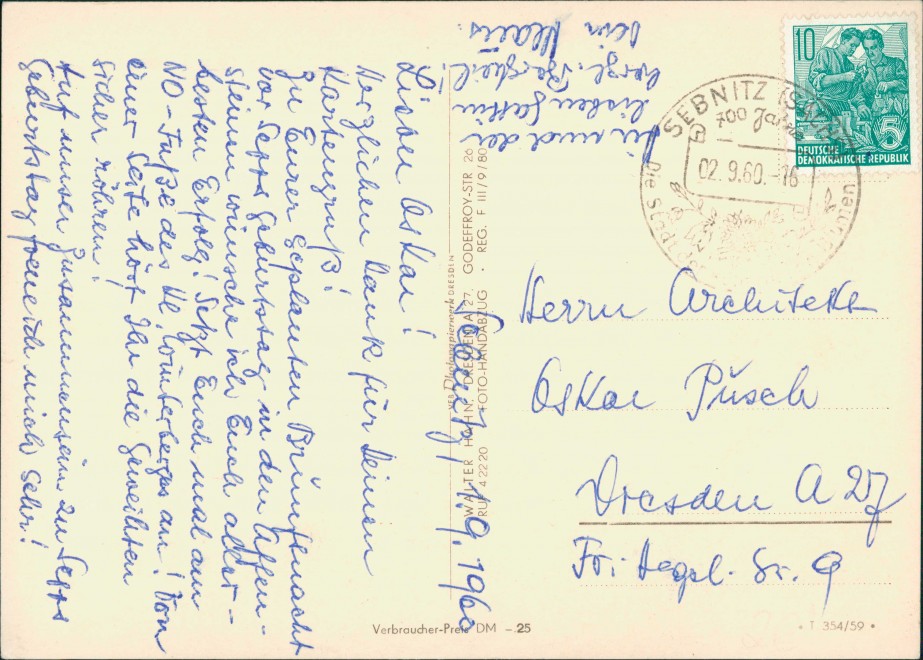 Sebnitz, 1.9.1960
Lieber Oskar!
Herzlichen Dank für Deinen
Kartengruß!
Zu Eurer geplanten Brunftnacht
vor Sepps Geburtstag in den Affen-
steinen wünsche ich Euch aller-
besten Erfolg! Setzt Euch mal am
NO-Fuße des Kl. Winterberges an! Von
einer Seite hört Ihr die Geweihten
sicher röhren.
Auf unser Zusammensein zu Sepps
Geburtstag freue ich mich sehr!
Dir und der
lieben Gattin
herzl. Bergheil!
Dein Klaus.
VEB Photopapierwerk DRESDEN
WALTER HAHN, DRESDEN A 27, GODEFFROY-STR 26
RUF 42220 • FOTO-HANDABZUG • REG. F III/9/80
Verbraucher-Preis DM -.25
10
5
DEUTSCHE
DEMOKRATISCHE REPUBLIK
SEBNITZ
700 Jahre
02.9.60.-16
Die Stadt der
Herrn Architekt
Oskar Püsch
Dresden A 27
Fr. Hegel-Str. 9
• T 354/59 •